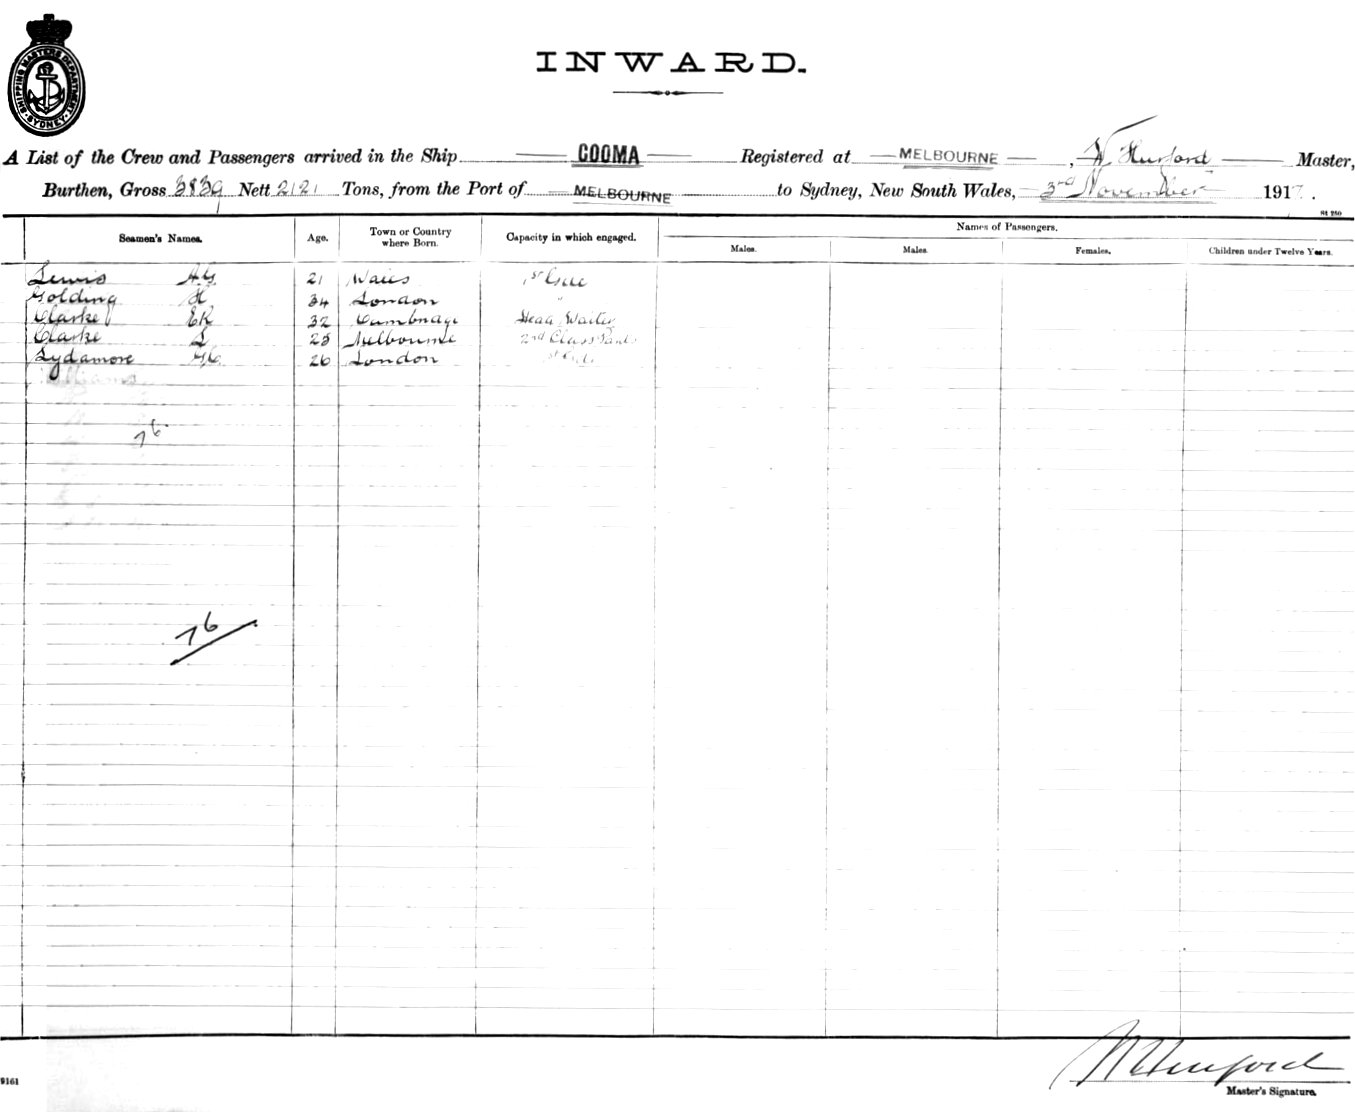 SHIPPING MASTERS DEPARTMENT
SYDNEY
INWARD.
A List of the Crew and Passengers arrived in the Ship COOMA Registered at MELBOURNE, W Hurford Master,
Burthen, Gross 3839 Nett 2121 Tons, from the Port of MELBOURNE to Sydney, New South Wales, 3rd November 1917.
St 250
Seamen's Names. Age. Town or Country where Born. Capacity in which engaged. Names of Passengers.
Males. Males. Females. Children under Twelve Years.
Lewis AG 21 Wales 1st
Golding H 34 London "
Clarke ER 32 Cambridge Head Waiter
Clarke L 25 Melbourne 2nd Class
Lydamore 26 London 1st
Williams
76
76
W Hurford
9161
Master's Signature.